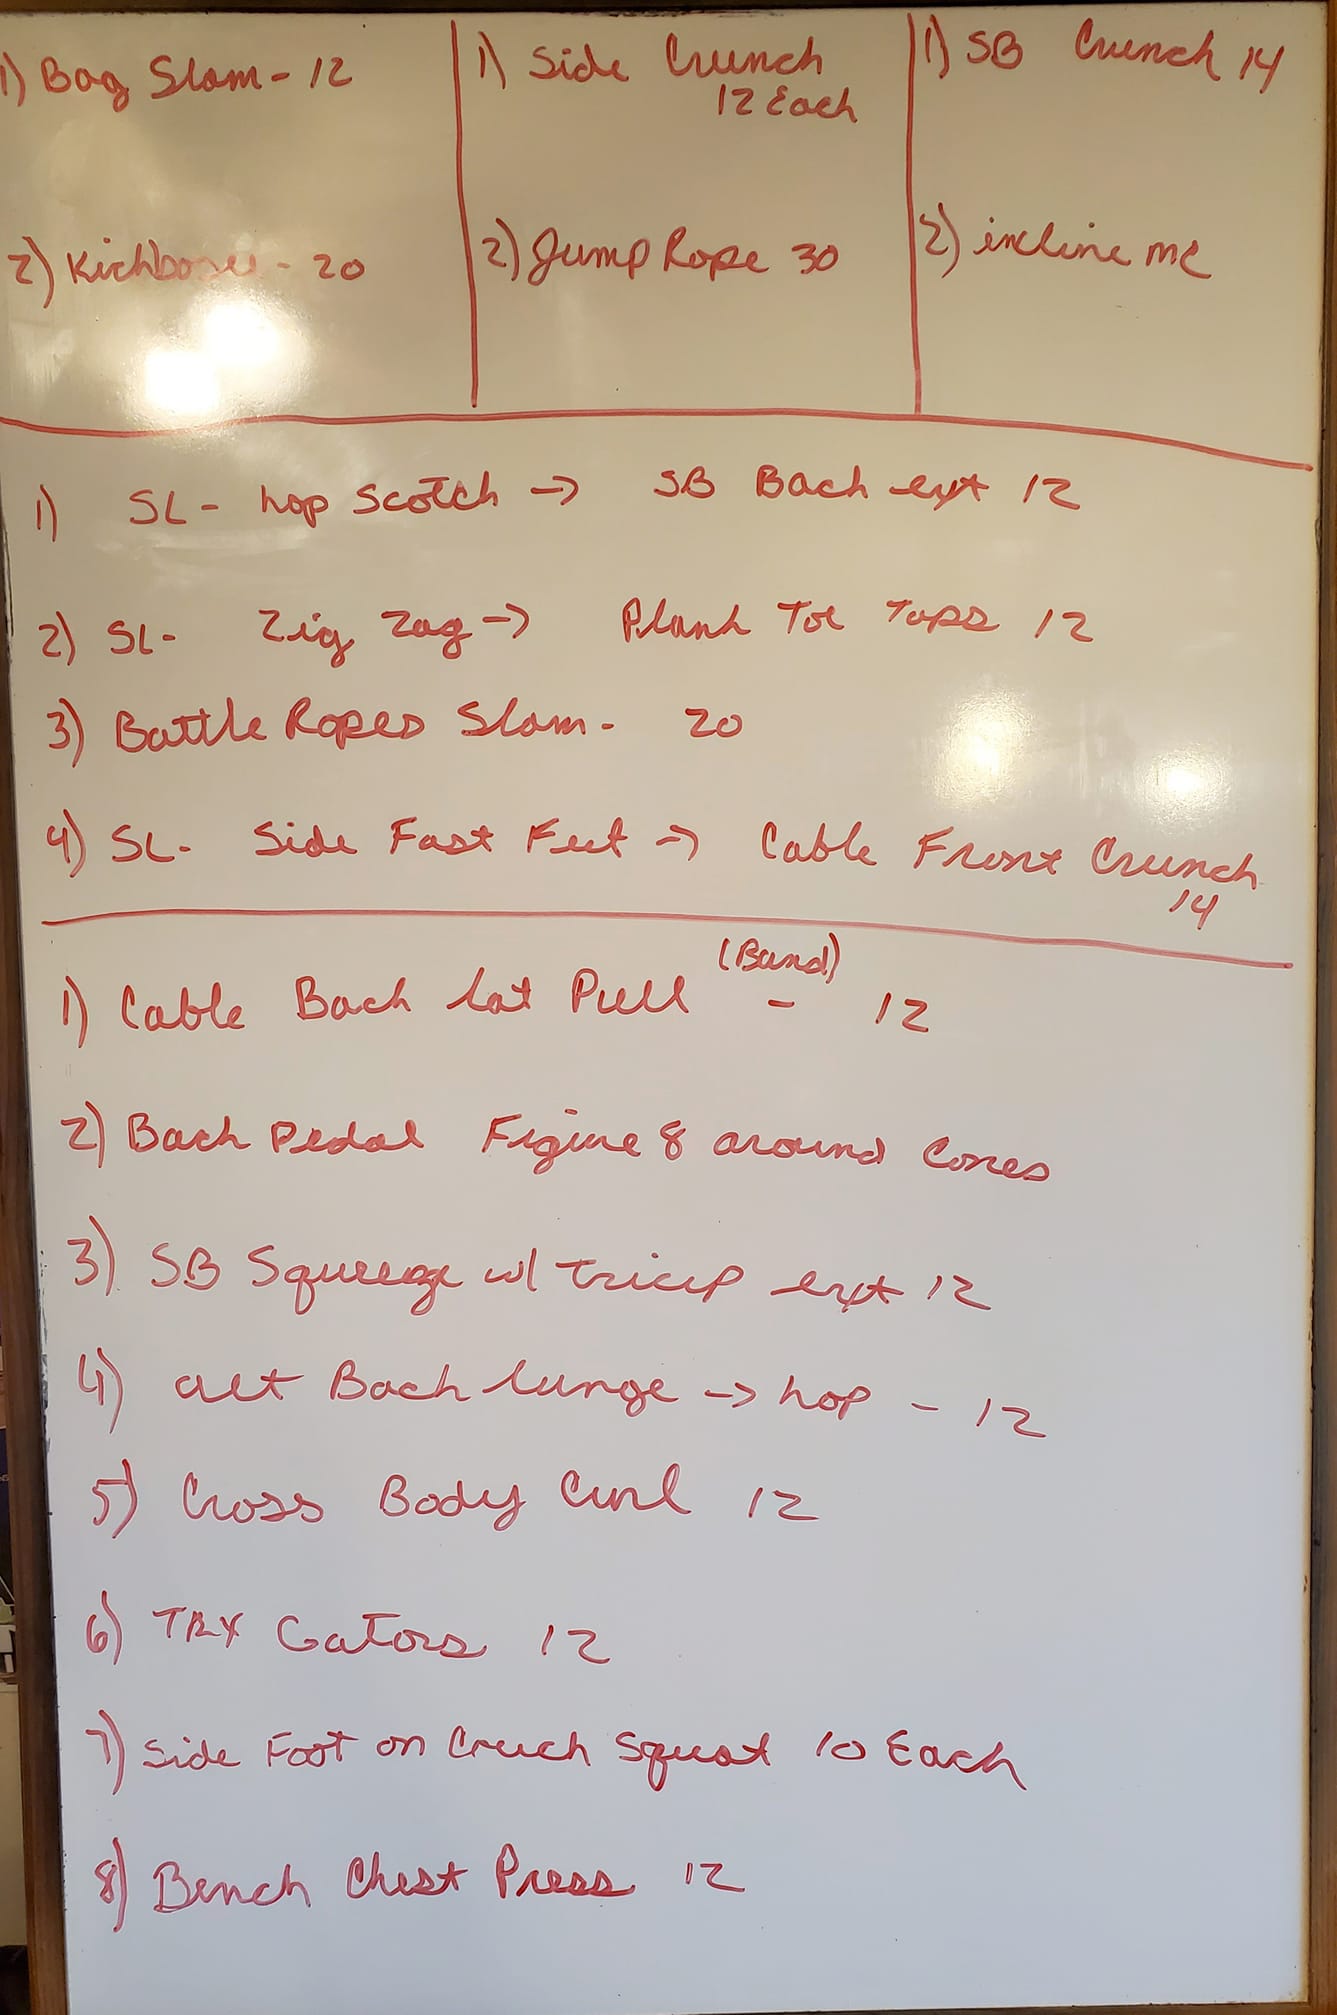 1) Bag Slam - 12
2) Kickboxer - 20
1) Side Crunch
12 Each
2) Jump Rope 30
1) SB Crunch 14
2) incline mc
1) SL - hop Scotch → SB Back ext 12
2) SL - Zig Zag → Plank Toe Taps 12
3) Battle Ropes Slam - 20
4) SL - Side Fast Feet → Cable Front Crunch
14
(Band)
1) Cable Back Lat Pull - 12
2) Back Pedal Figure 8 around Cones
3) SB Squeeze w/ tricep ext 12
4) alt Back lunge → hop - 12
5) Cross Body Curl 12
6) TRX Gators 12
7) Side Foot on Couch Squat 10 Each
8) Bench Chest Press 12